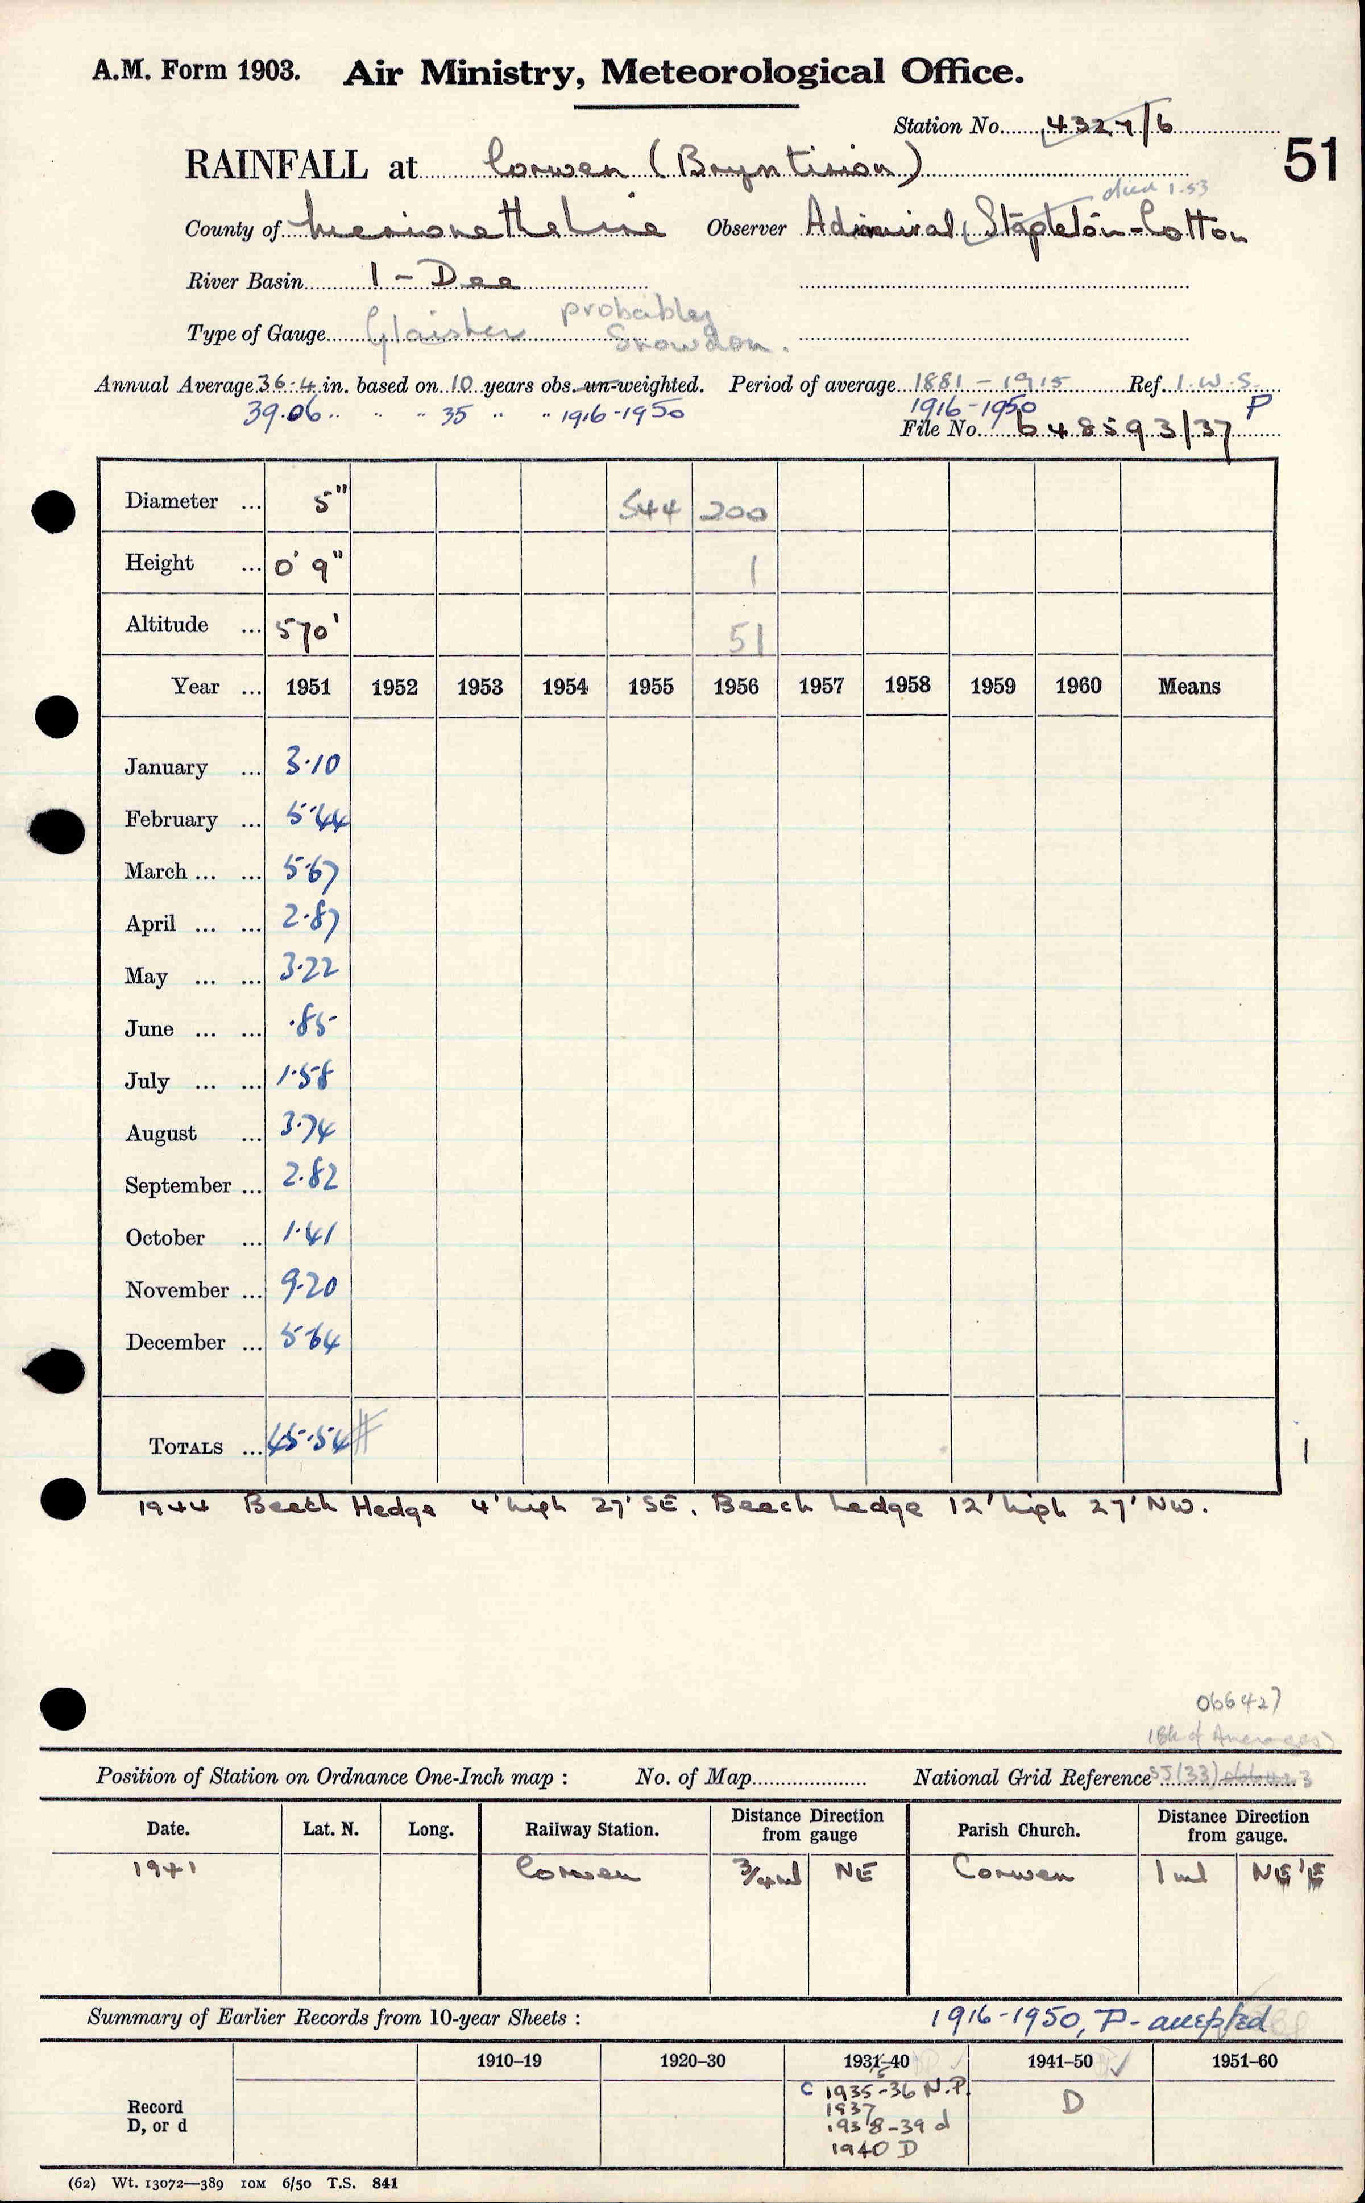 A.M. Form 1903. Air Ministry, Meteorological Office.
Station No. 4327/6
51
RAINFALL at Corwen (Bryntirion)
died 1.53
County of Merionethshire Observer Admiral Stapleton-Cotton
River Basin 1 - Dee
Type of Gauge Glaisher probably Snowdon.
Annual Average 36.4 in. based on 10 years obs. un-weighted. Period of average 1881 - 1915 Ref. I.W.S.
39.06 " " " 35 " " 1916-1950 1916-1950 P
File No. 648593/37
Diameter ... 5" 544 200
Height ... 0' 9" 1
Altitude ... 570' 51
Year ... 1951 1952 1953 1954 1955 1956 1957 1958 1959 1960 Means
January ... 3.10
February ... 5.44
March ... ... 5.67
April ... ... 2.87
May ... ... 3.22
June ... ... .85
July ... ... 1.58
August ... 3.74
September ... 2.82
October ... 1.41
November ... 9.20
December ... 5.64
TOTALS ... 45.54
1944 Beech Hedge 4' high 27' SE, Beech hedge 12' high 27' NW.
066427
(Bk of Averages)
Position of Station on Ordnance One-Inch map : No. of Map National Grid Reference SJ(33)
Date. Lat. N. Long. Railway Station. Distance Direction from gauge Parish Church. Distance Direction from gauge.
1941 Corwen 3/4 ml NE Corwen 1 ml NE'E
Summary of Earlier Records from 10-year Sheets : 1916-1950, P- accepted
1910–19 1920–30 1931–40 1941–50 1951–60
Record D, or d
C 1935-36 N.P. D
1937
1938-39 d
1940 D
(62) Wt. 13072—389 10M 6/50 T.S. 841